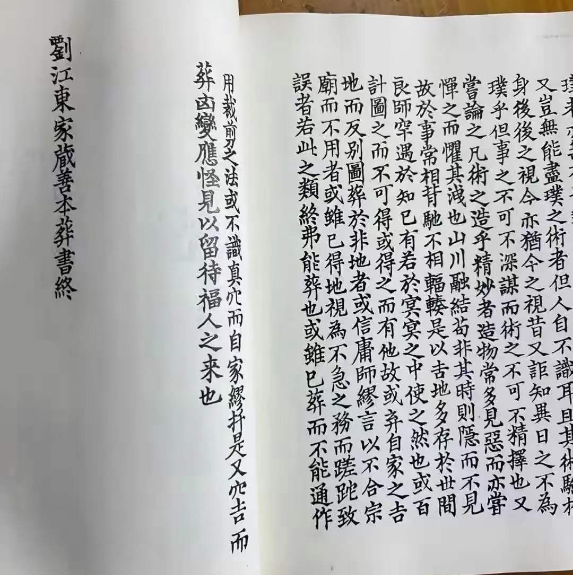 又豈無能盡璞之術者但人自不識耳且其術驗於
身後後之視今亦猶今之視昔又詎知異日之不為
璞乎但事之不可不深謀而術之不可不精擇也又
嘗論之凡術之造乎精妙者造物常多見惡而亦嘗
憚之而懼其洩也山川融結苟非其時則隱而不見
故於事常相背馳不相輻輳是以吉地多存於世間
良師罕遇於知已有若於冥冥之中使之然也或百
計圖之而不可得或得之而有他故或弃自家之吉
地而反别圖葬於非地者或信庸師繆言以不合宗
廟而不用者或雖已得地視為不急之務而蹉跎致
誤者若此之類終弗能葬也或雖已葬而不能通作
用裁剪之法或不識真穴而自家繆扞是又穴吉而
葬凶變應怪見以留待福人之來也
劉江東家藏善本葬書終